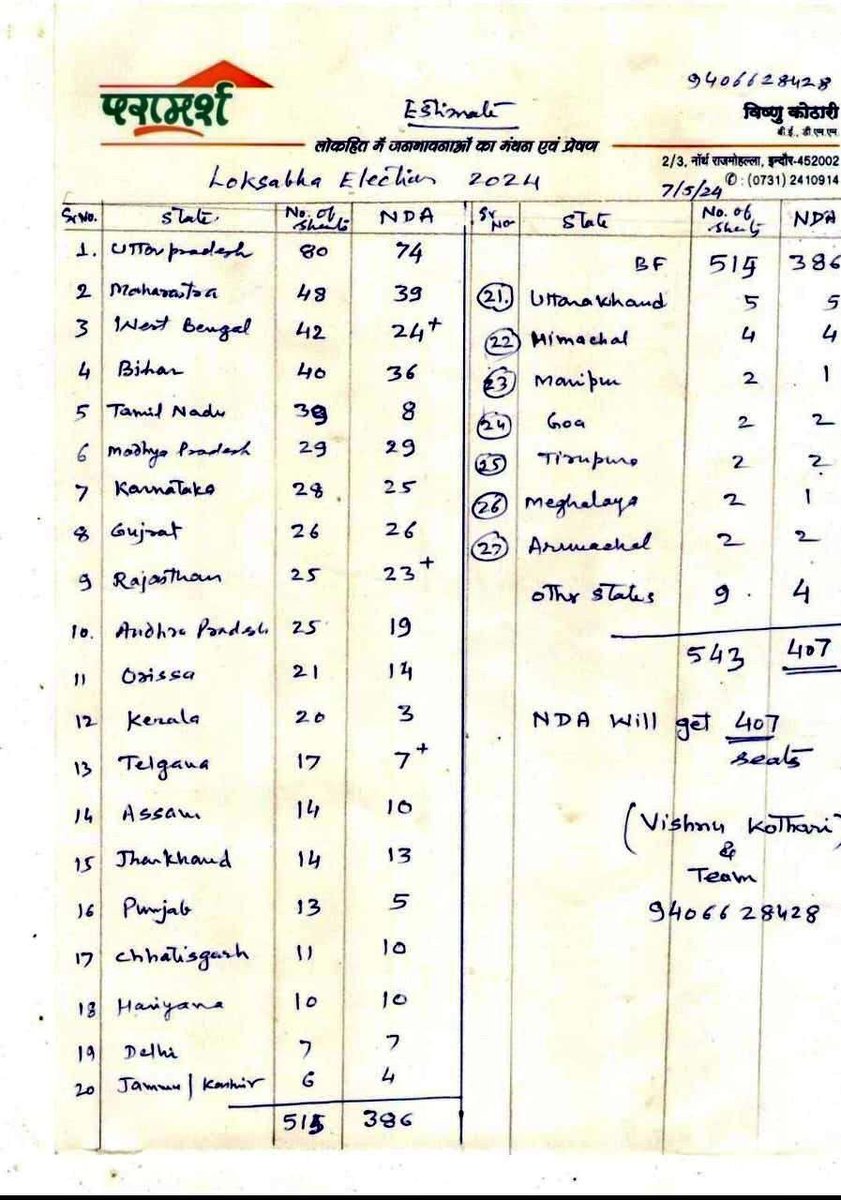 9406628428
परामर्श
Estimate
विष्णु कोठारी
बी.ई., डी एम एम.
लोकहित में जनभावनाओं का मंथन एवं प्रेषण
2/3, नॉर्थ राजमोहल्ला, इन्दौर-452002
✆ : (0731) 2410914
Loksabha Election 2024
7/5/24
Sr No. State No. of Sheats NDA
1. Uttar pradesh 80 74
2 Maharastra 48 39
3 West Bengal 42 24+
4 Bihar 40 36
5 Tamil Nadu 39 8
6 Madhya Pradesh 29 29
7 Karnataka 28 25
8 Gujrat 26 26
9 Rajasthan 25 23+
10. Andhra Pradesh 25 19
11 Orissa 21 14
12 Kerala 20 3
13 Telgana 17 7+
14 Assam 14 10
15 Jharkhand 14 13
16 Punjab 13 5
17 Chhatisgarh 11 10
18 Hariyana 10 10
19 Delhi 7 7
20 Jammu | Kashmir 6 4
515 386
Sr No State No. of Sheats NDA
BF 515 386
21. Uttarakhand 5 5
22 Himachal 4 4
23 Manipur 2 1
24 Goa 2 2
25 Tirupura 2 2
26 Meghalaya 2 1
27 Arunachal 2 2
Othr States 9. 4
543 407
NDA Will get 407
seats
(Vishnu Kothari)
&
Team
9406628428